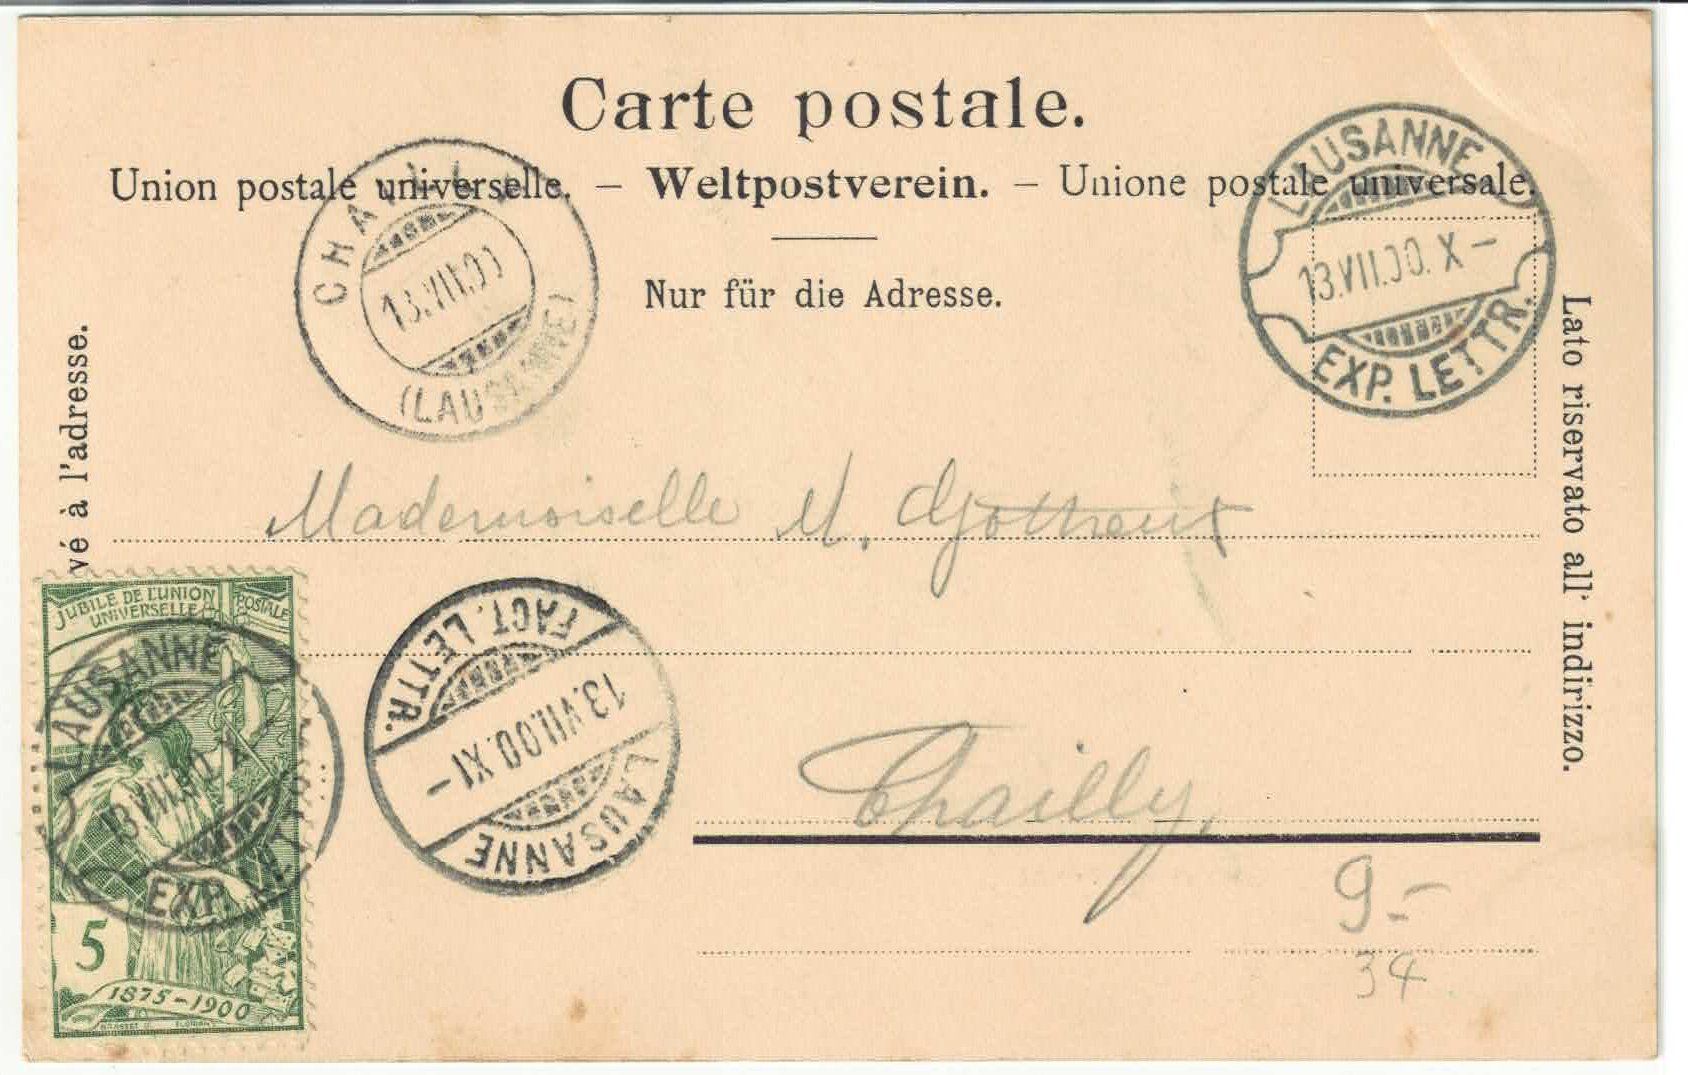 Carte postale.
Union postale universelle. – Weltpostverein. – Unione postale universale.
Nur für die Adresse.
CHAILLY
13.VII.00
(LAUSANNE)
LAUSANNE
13.VII.00. X –
EXP. LETTR.
vé à l'adresse.
Lato riservato all' indirizzo.
Mademoiselle M.
JUBILE DE L'UNION POSTALE
UNIVERSELLE
LAUSANNE
13.VII.00. X
EXP. LETTR.
5
1875–1900
LAUSANNE
13.VII.00.XI –
FACT. LETTR.
Chailly.
9.–
34